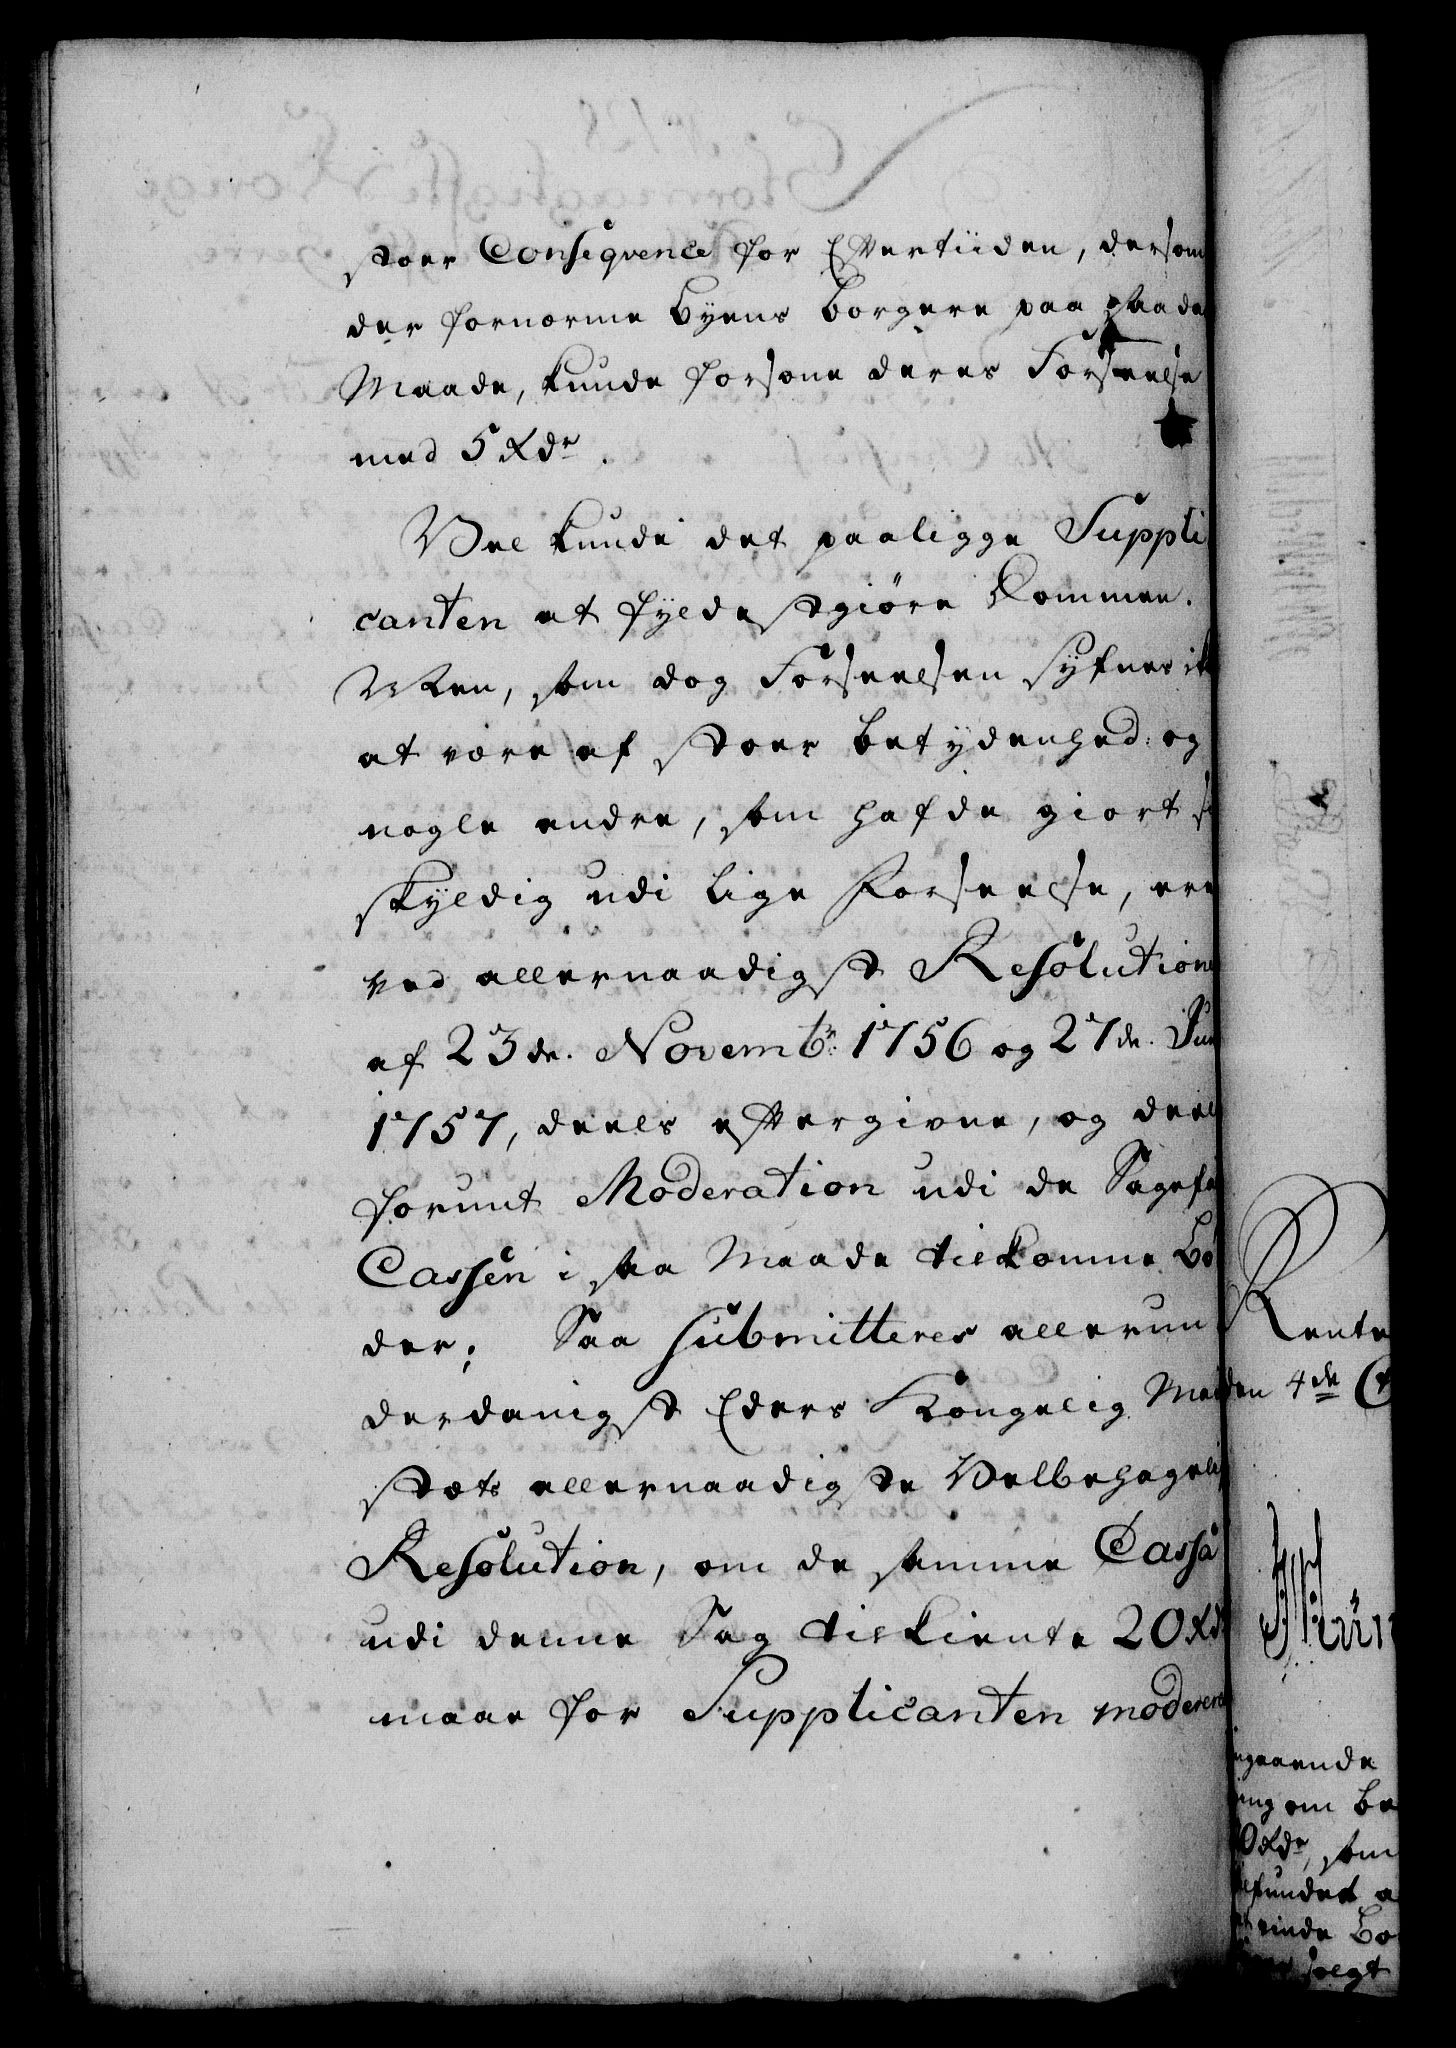 stoer Conseqvence for Eftertiiden, dersom
der fornærme Byens Borgere paa saada
Maade, kunde forsone deres Forseelse
med 5 Rdr.
Vel kunde det paaligge Suppli
canten at fyldestgiøre Dommen.
Men, som dog Forseelsen syfnes ik
at være af stoer betydenhed: og
nogle andre, som hafde giort si
skyldig udi lige Forseelse, ere
ved allernaadigst Resolutione
af 23de. Novembr: 1756 og 27de. Jun
1757, deels eftergivne, og deel
forunt Moderation udi de Sagefa
Cassen i saa Maade tilkomne Bø
der; Saa submitteres allerun
derdanigst Eders Kongelig May
stæts allernaadigste Velbehagelig
Resolution, om de samme Cassa
udi denne Sag tilkiente 20 Rd
maae for Supplicanten moderere
Rente
den 4de
ngaaende
ing om Be
0 Rdr, som
befundet a
inde Bo
solgt